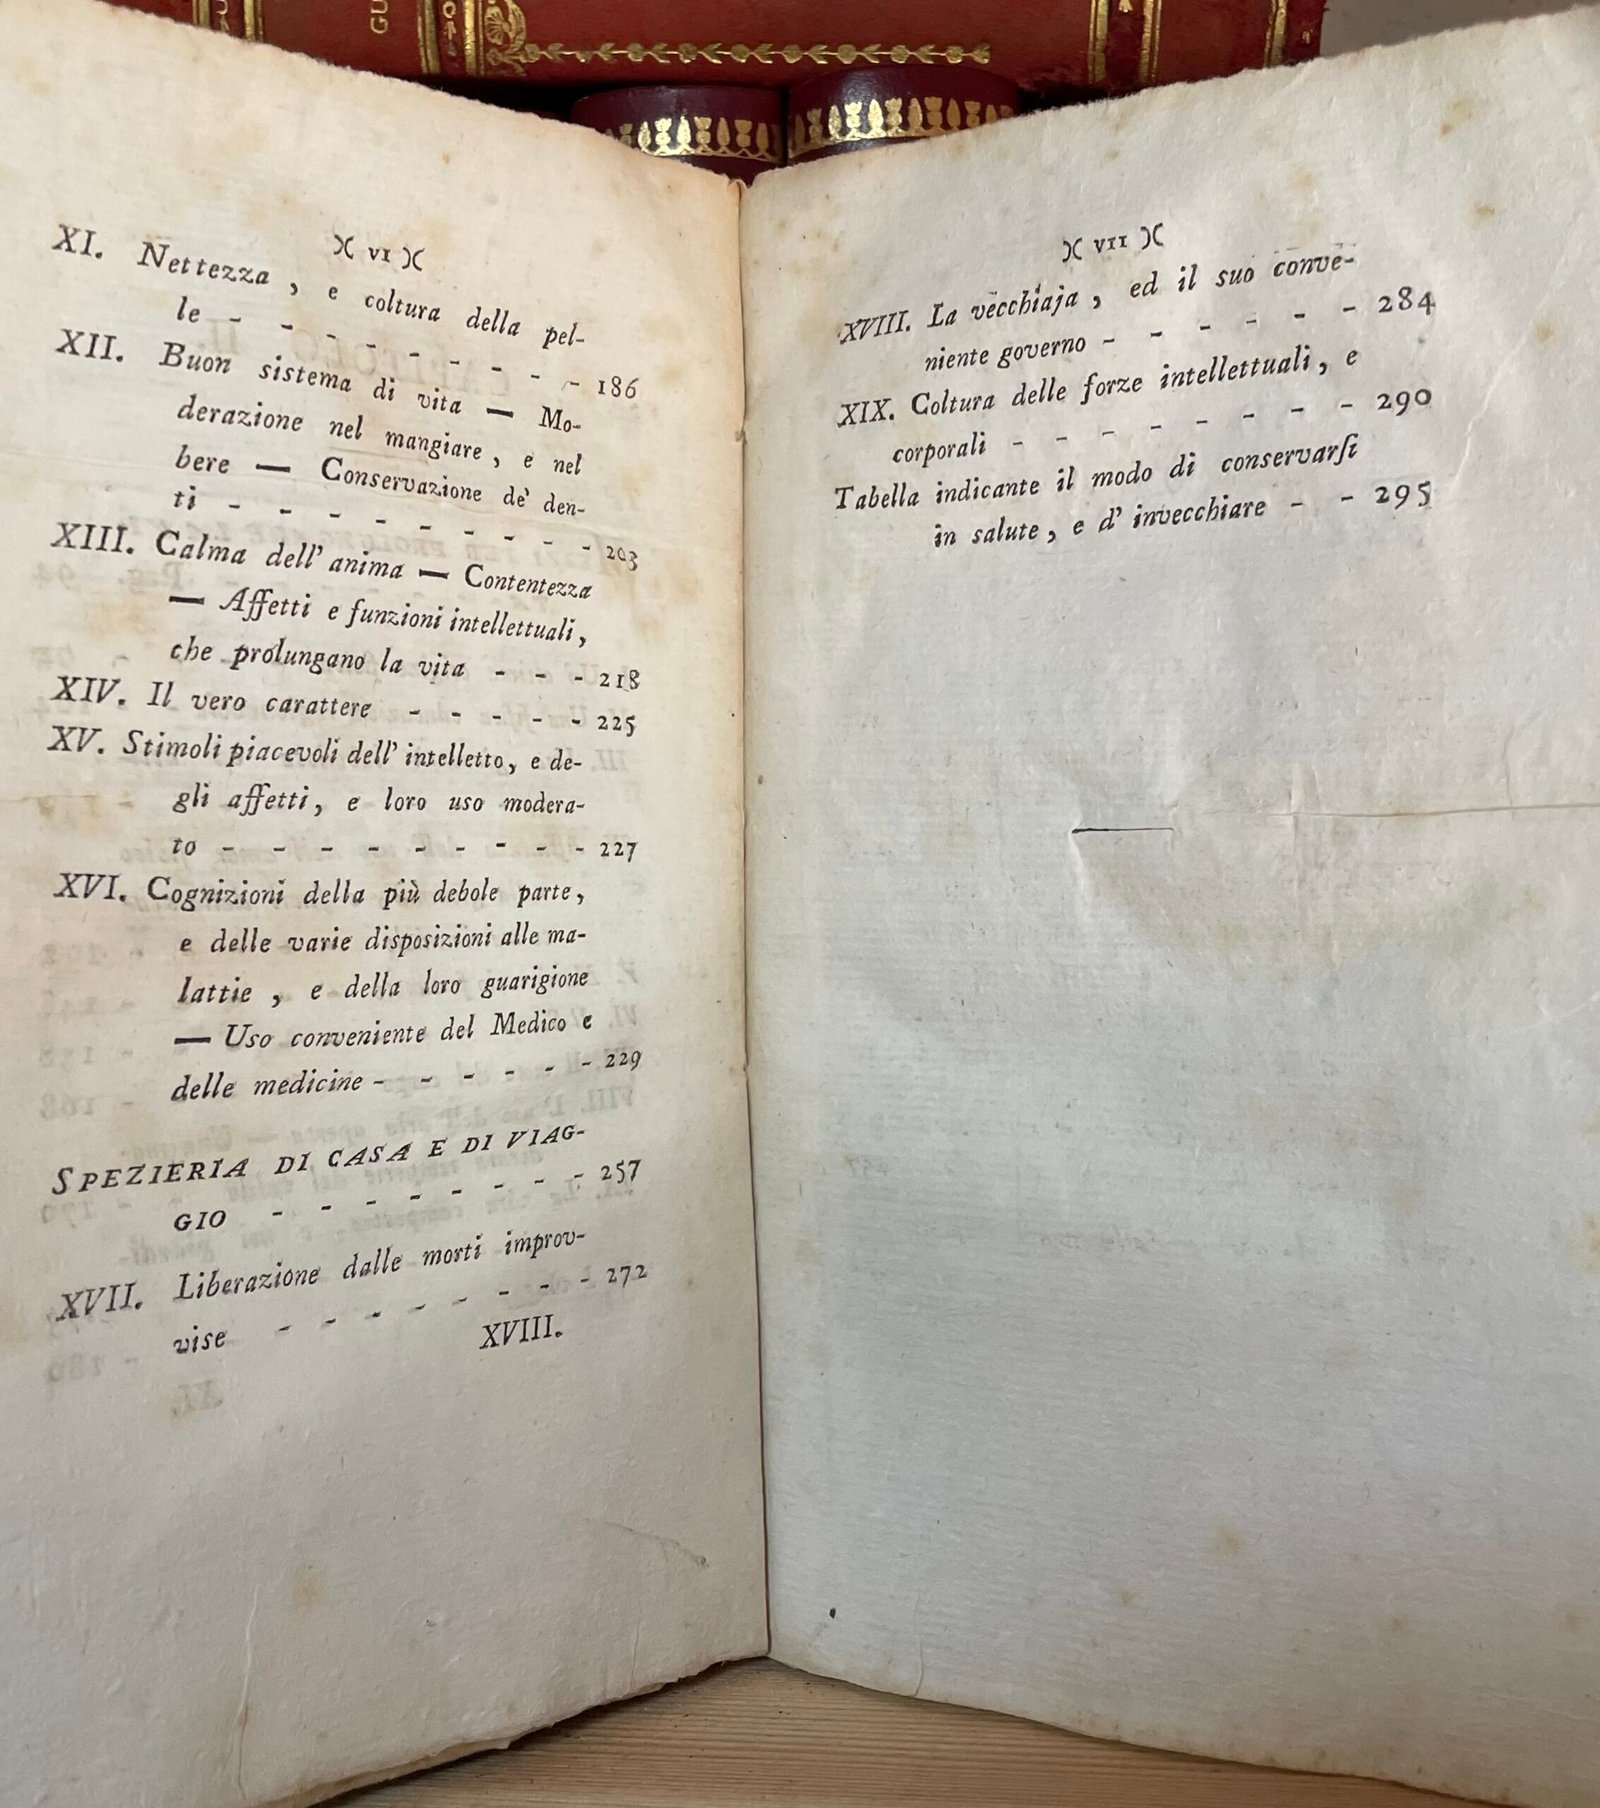 )( VI )(
XI. Nettezza , e coltura della pel-
le - - - - - - - - - 186
XII. Buon sistema di vita — Mo-
derazione nel mangiare , e nel
bere — Conservazione de' den-
ti - - - - - - - - - 203
XIII. Calma dell' anima — Contentezza
— Affetti e funzioni intellettuali ,
che prolungano la vita - - - 218
XIV. Il vero carattere - - - - - 225
XV. Stimoli piacevoli dell' intelletto , e de-
gli affetti , e loro uso modera-
to - - - - - - - - - 227
XVI. Cognizioni della più debole parte ,
e delle varie disposizioni alle ma-
lattie , e della loro guarigione
— Uso conveniente del Medico e
delle medicine - - - - - - 229
SPEZIERIA DI CASA E DI VIAG-
GIO - - - - - - - - 257
XVII. Liberazione dalle morti improv-
vise - - - - - - - - 272
XVIII.
)( VII )(
XVIII. La vecchiaja , ed il suo conve-
niente governo - - - - - - 284
XIX. Coltura delle forze intellettuali , e
corporali - - - - - - - - 290
Tabella indicante il modo di conservarſi
in salute , e d' invecchiare - - 295